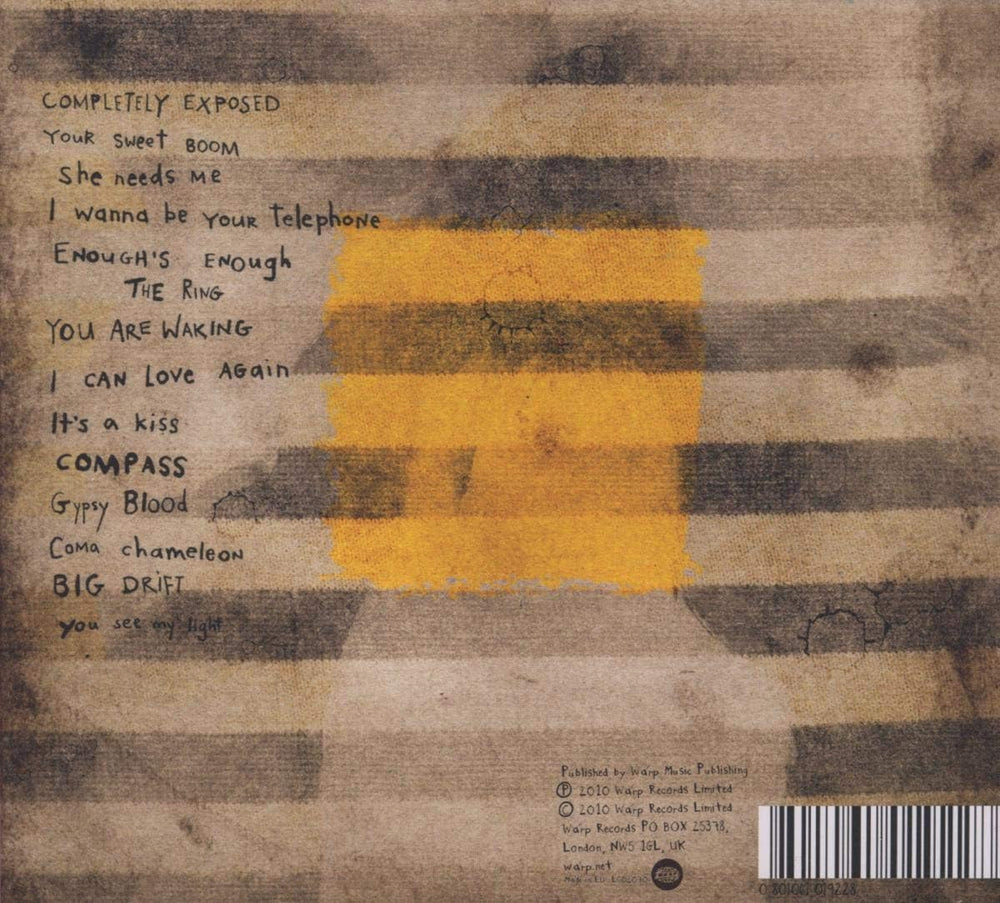 COMPLETELY EXPOSED
YOUR sweet BOOM
She needs ME
I wanna be YOUR telephone
ENOUGH'S ENOugh
THE RING
YOU ARE WAKING
I CAN Love AGain
It's a kiss
COMPASS
Gypsy Blood
COMA chameleon
BIG DRiFT
you see my light
Published by Warp Music Publishing
Ⓟ 2010 Warp Records Limited
© 2010 Warp Records Limited
Warp Records PO BOX 25378,
London, NW5 1GL, UK
warp.net
Made in EU